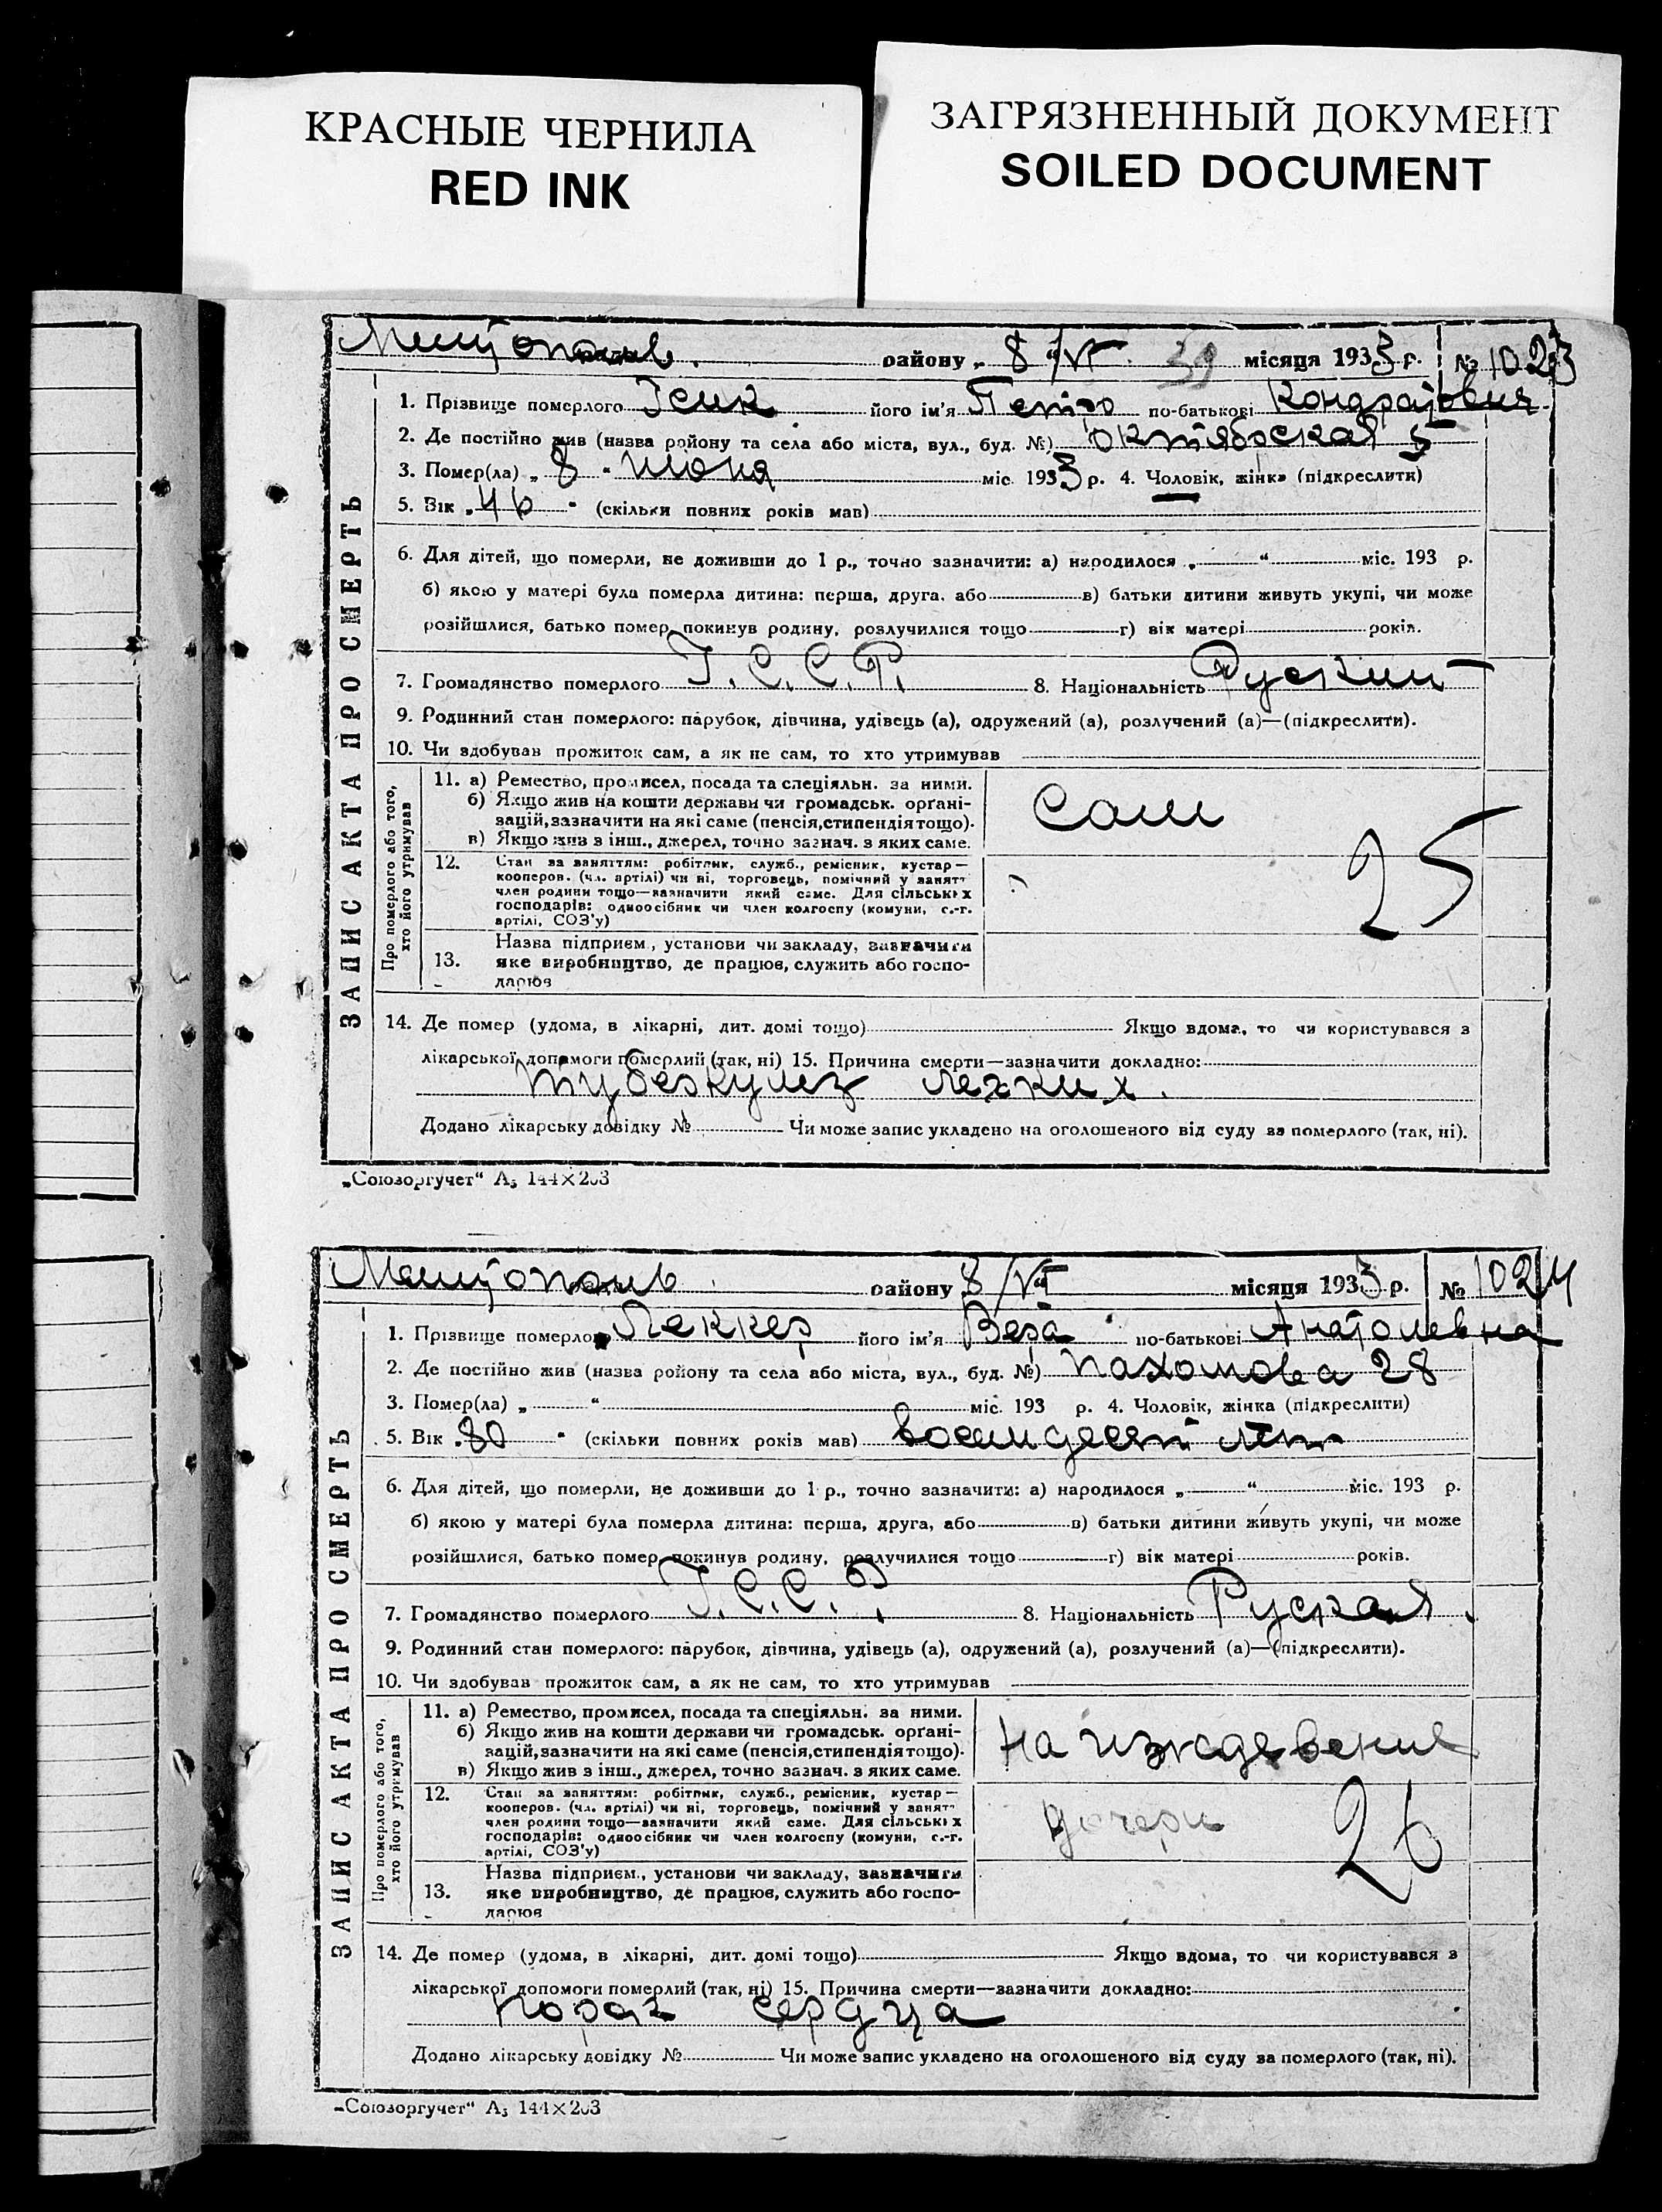 КРАСНЫЕ ЧЕРНИЛА
RED INK
ЗАГРЯЗНЕННЫЙ ДОКУМЕНТ
SOILED DOCUMENT
району „ 8 “ VI 39 місяця 1933 р. № 1023
1. Прізвище померлого його ім'я по-батькові
2. Де постійно жив (назва району та села або міста, вул., буд. №) Октябрская 5
3. Помер(ла) „ 8 “ июня міс. 1933 р. 4. Чоловік, жінка (підкреслити)
5. Вік „ 46 “ (скільки повних років мав)
6. Для дітей, що померли, не доживши до 1 р., точно зазначити: а) народилося „ “ міс. 193 р.
б) якою у матері була померла дитина: перша, друга, або в) батьки дитини живуть укупі, чи може
розійшлися, батько помер, покинув родину, розлучилися тощо г) вік матері років.
7. Громадянство померлого 8. Національність Руский
9. Родинний стан померлого: парубок, дівчина, удівець (а), одружений (а), розлучений (а)—(підкреслити).
10. Чи здобував прожиток сам, а як не сам, то хто утримував
ЗАПИС АКТА ПРО СМЕРТЬ
Про померлого або того, хто його утримував
11. а) Ремество, промисел, посада та спеціяльн. за ними.
б) Якщо жив на кошти держави чи громадськ. орґані-
зацій, зазначити на які саме (пенсія, стипендія тощо).
в) Якщо жив з інш., джерел, точно зазнач. з яких саме.
Сам
12. Стан за заняттям: робітник, служб., ремісник, кустар—
кооперов. (чл. артілі) чи ні, торговець, помічний у занятт
член родини тощо—зазначити який саме. Для сільських
господарів: одноосібник чи член колгоспу (комуни, с.-г.
артілі, СОЗ'у)
25
13. Назва підприєм., установи чи закладу, зазначити
яке виробництво, де працюв, служить або госпо-
дарюв
14. Де помер (удома, в лікарні, дит. домі тощо) Якщо вдома, то чи користувався з
лікарської допомоги померлий (так, ні) 15. Причина смерти—зазначити докладно:
туберкулез легких.
Додано лікарську довідку № Чи може запис укладено на оголошеного від суду за померлого (так, ні).
„Союзоргучет“ А5 144×203
району 8/VI місяця 1933 р. № 1024
1. Прізвище померлого Леккер його ім'я Вера по-батькові Анатолевна
2. Де постійно жив (назва району та села або міста, вул., буд. №) Пахомова 28
3. Помер(ла) „ “ міс. 193 р. 4. Чоловік, жінка (підкреслити)
5. Вік „ 80 “ (скільки повних років мав) восемдесят лет
6. Для дітей, що померли, не доживши до 1 р., точно зазначити: а) народилося „ “ міс. 193 р.
б) якою у матері була померла дитина: перша, друга, або в) батьки дитини живуть укупі, чи може
розійшлися, батько помер, покинув родину, розлучилися тощо г) вік матері років.
7. Громадянство померлого 8. Національність Руская.
9. Родинний стан померлого: парубок, дівчина, удівець (а), одружений (а), розлучений (а)—(підкреслити).
10. Чи здобував прожиток сам, а як не сам, то хто утримував
ЗАПИС АКТА ПРО СМЕРТЬ
Про померлого або того, хто його утримував
11. а) Ремество, промисел, посада та спеціяльн. за ними.
б) Якщо жив на кошти держави чи громадськ. орґані-
зацій, зазначити на які саме (пенсія, стипендія тощо).
в) Якщо жив з інш., джерел, точно зазнач. з яких саме.
на иждевение
12. Стан за заняттям: робітник, служб., ремісник, кустар—
кооперов. (чл. артілі) чи ні, торговець, помічний у занятт
член родини тощо—зазначити який саме. Для сільських
господарів: одноосібник чи член колгоспу (комуни, с.-г.
артілі, СОЗ'у)
дочери 26
13. Назва підприєм., установи чи закладу, зазначити
яке виробництво, де працюв, служить або госпо-
дарюв
14. Де помер (удома, в лікарні, дит. домі тощо) Якщо вдома, то чи користувався з
лікарської допомоги померлий (так, ні) 15. Причина смерти—зазначити докладно:
порок сердца
Додано лікарську довідку № Чи може запис укладено на оголошеного від суду за померлого (так, ні).
„Союзоргучет“ А5 144×203